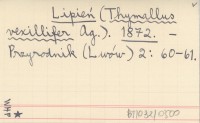 Lipień (Thymallus
vexillifer Ag.). 1872. —
Przyrodnik (Lwów) 2: 60-61.